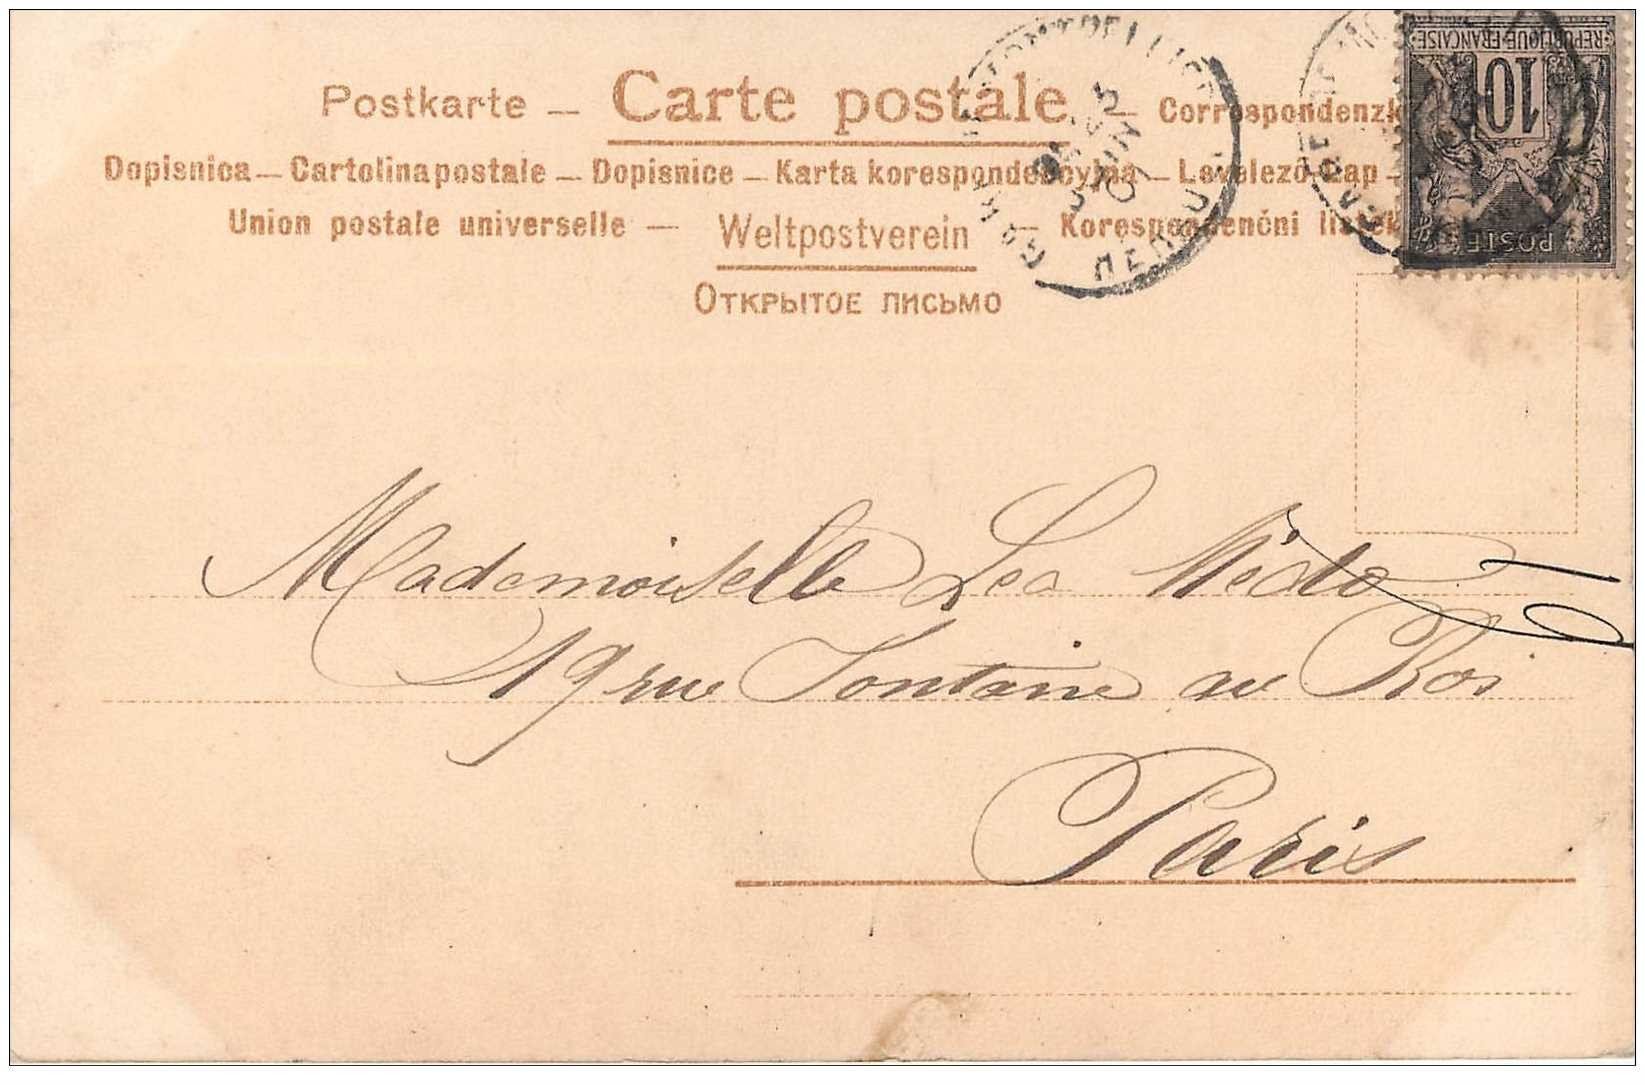 Postkarte – Carte postale – Correspondenzk
Dopisnica – Cartolina postale – Dopisnice – Karta korespondencyjna – Levelező-Lap –
Union postale universelle – Weltpostverein – Korespondenční lístek
Открытое письмо
REPUBLIQUE FRANÇAISE
10
POSTE
JUIN
01
Mademoiselle Lea
19 rue Fontaine au Roi
Paris